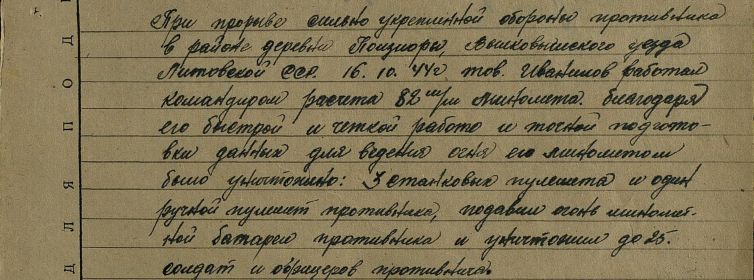 При прорыве сильно укрепленной обороны противника
в районе деревни Вылковышского уезда
Литовской ССР. 16.10.44г тов. Иванилов работал
командиром расчета 82 м/м миномета. благодаря
его быстрой и четкой работе и точной подгото-
вки данных для ведения огня его минометом
было уничтожено: 3 станковых пулемета и один
ручной пулемет противника, подавил огонь миномет-
ной батареи противника и уничтожил до 25.
солдат и офицеров противника.
Д Л Я П О Д